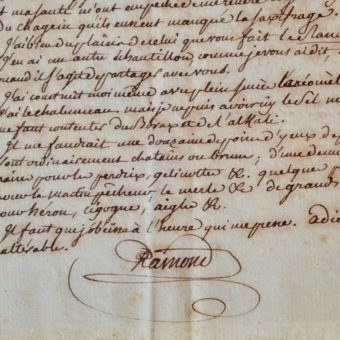 et ma santé m'ont empêché
du chagrin qu'ils eussent manqué la saxifrage.
J'ai bien du plaisir de celui que vous fait le
J'en ai un autre échantillon, comme je vous ai dit,
quand il s'agit de partager avec vous.
J'ai construit moi même avec plein succès
J'ai le chalumeau mais je ne puis avoir ici le Sel
me faut contenter du Borax et de l'alkali.
Il me faudrait une douzaine de paires d'yeux de
sont ordinairement chatains ou bruns; d'une demie
pour le perdrix, gelinotte &. quelque
pour le martin pêcheur le merle &c de grands
pour héron, cigogne, aigle &.
Il faut que j'obéisse à l'heure qui me presse. adie
Ramond